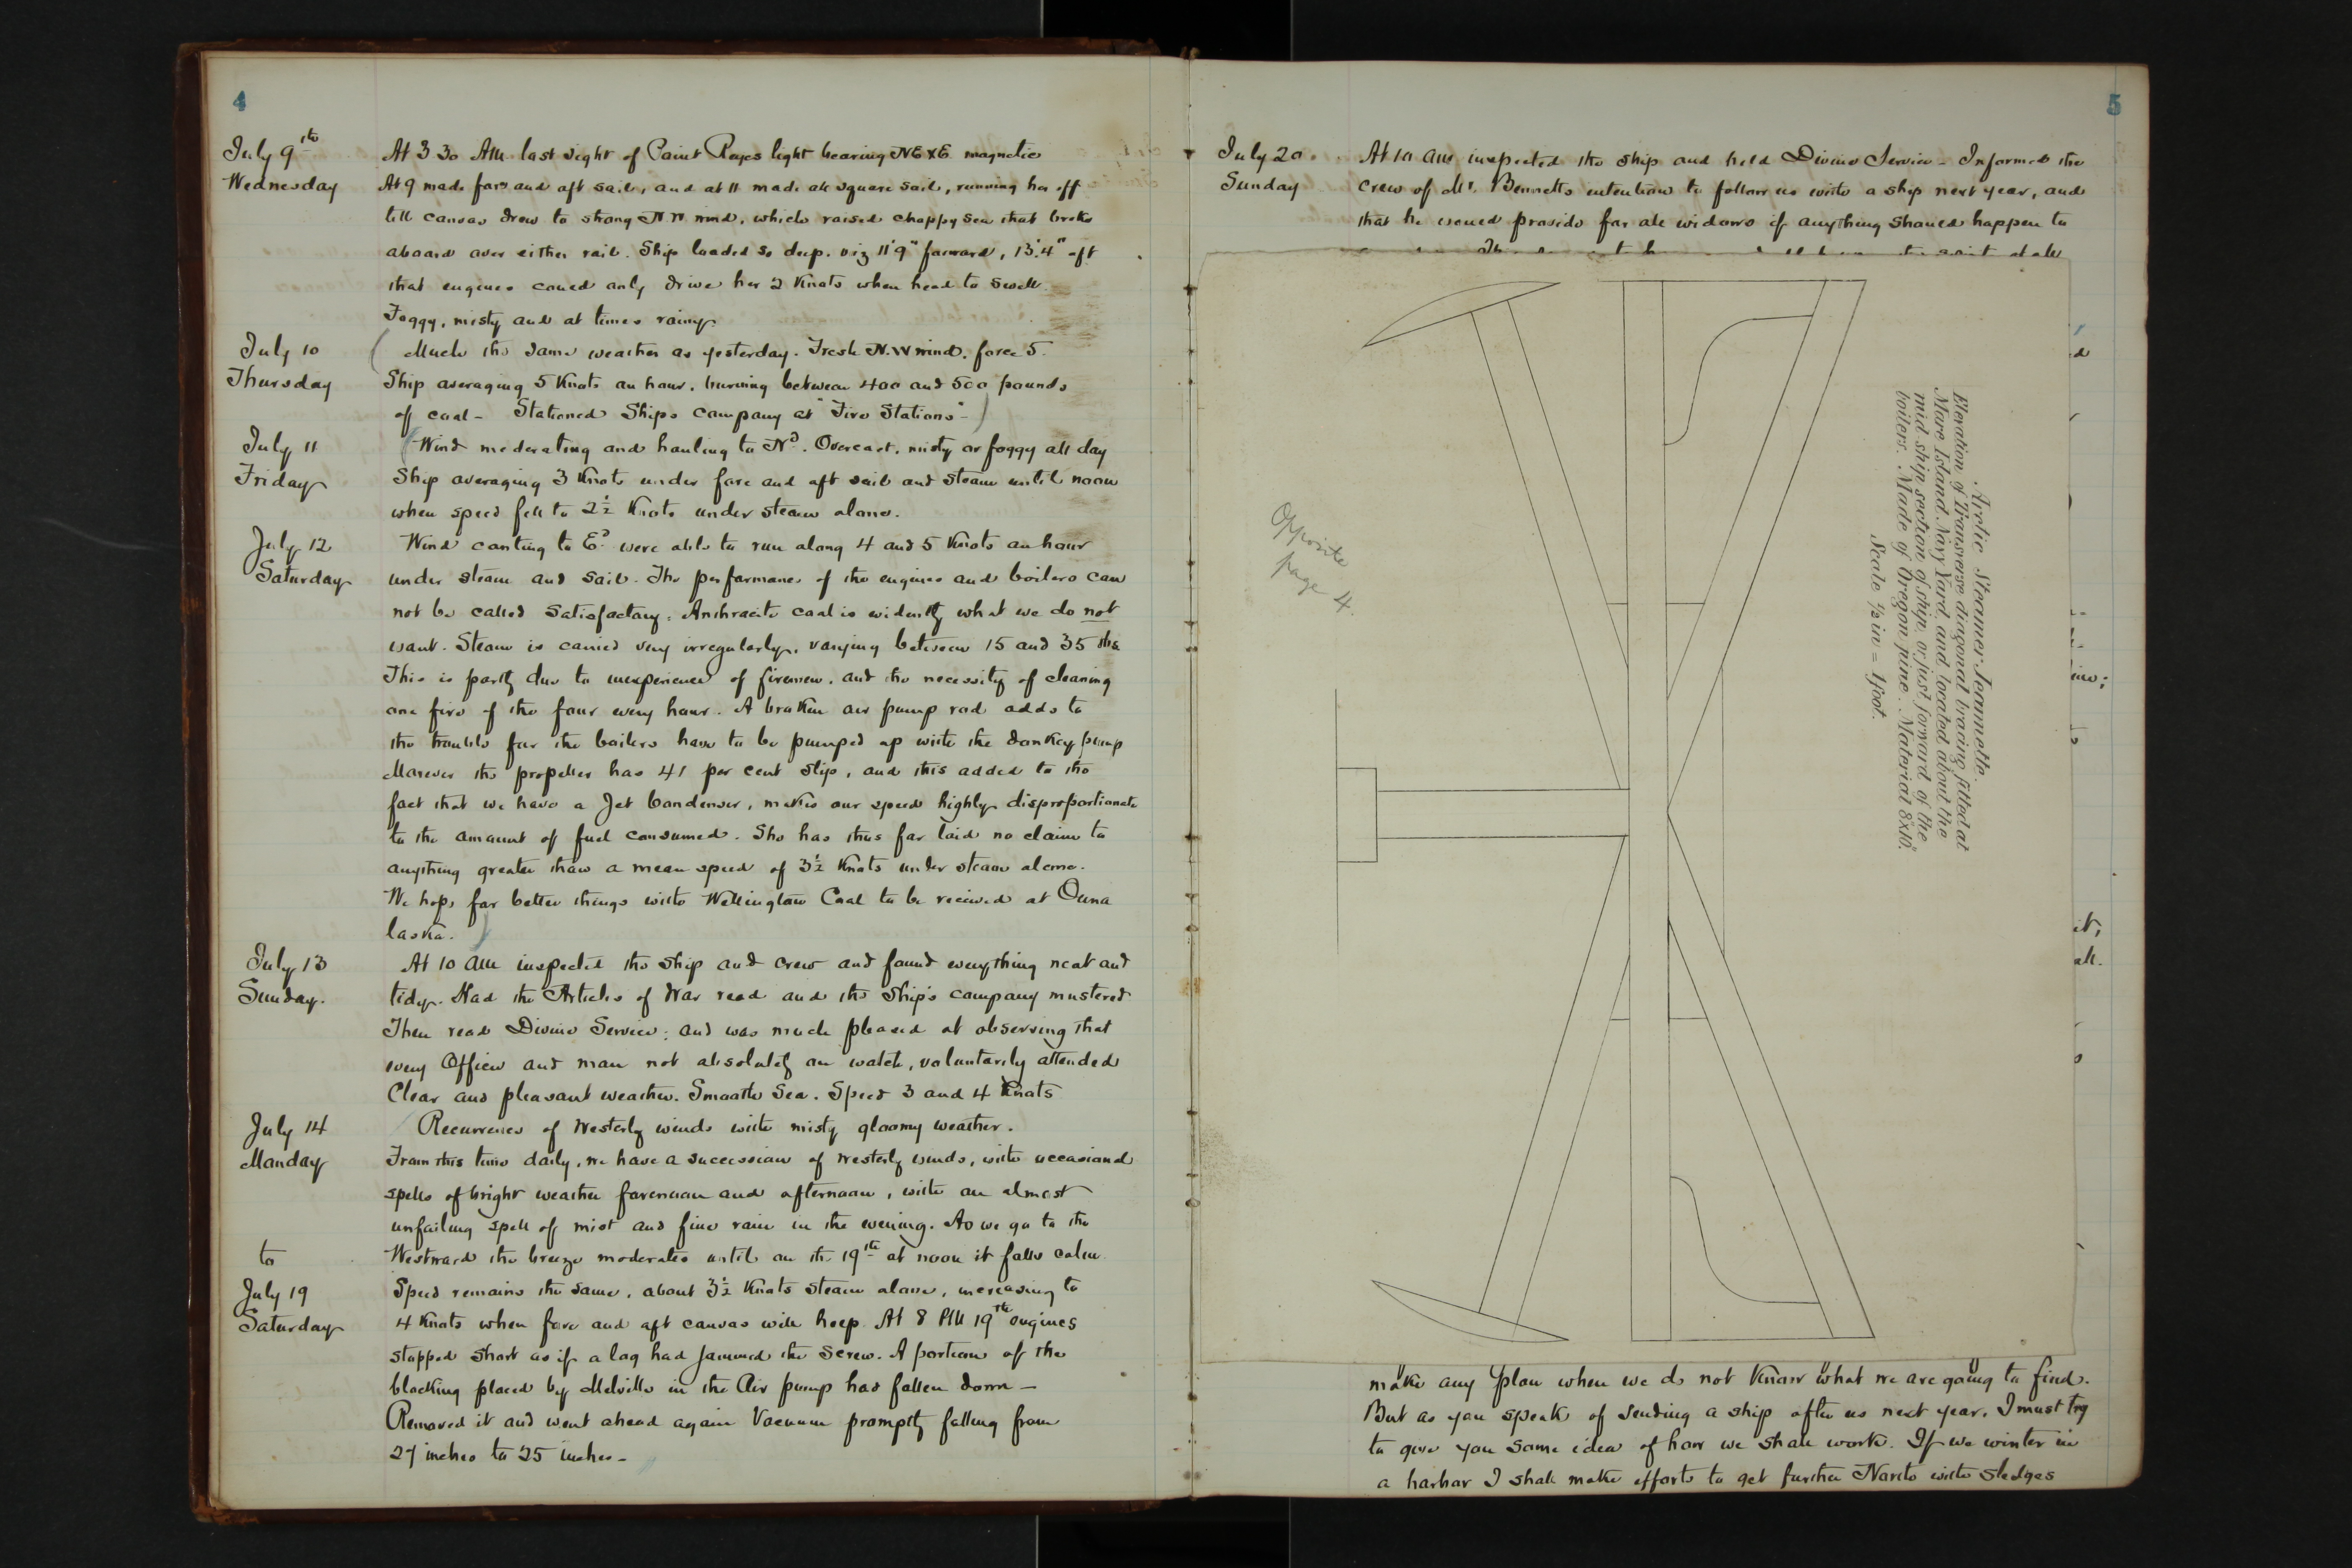 4
July 9th
Wednesday
At 3 30 AM last sight of Point Reyes light bearing NE x E magnetic
At 9 made fore and aft sail, and at 11 made all square sail, running her off
till canvas drew to strong N W wind, which raised choppy sea that broke
aboard over either rail. Ship loaded so deep. viz 11'9" forward, 13'.4" aft
that engines could only drive her 2 Knots when head to swell
Foggy, misty and at times rainy.
July 10
Thursday
( Much the same weather as yesterday. Fresh N.W wind. force 5.
Ship averaging 5 Knots an hour, burning between 400 and 500 pounds
of coal - Stationed Ships company at "Fire Stations" - )
July 11
Friday
( Wind moderating and hauling to Nd. Overcast, misty or foggy all day
Ship averaging 3 Knots under fore and aft sail and steam until noon
when speed fell to 2½ Knots under steam alone.
July 12
Saturday
Wind canting to Ed. were able to run along 4 and 5 Knots an hour
under steam and sail. The performance of the engines and boilers can
not be called satisfactory. Anthracite coal is evidently what we do not
want. Steam is carried very irregularly, varying between 15 and 35 lbs
This is partly due to inexperience of firemen, and the necessity of cleaning
one fire of the four every hour. A broken air pump rod adds to
the trouble for the boilers have to be pumped up with the donkey pump
Moreover the propeller has 41 per cent slip, and this added to the
fact that we have a Jet Condenser, makes our speed highly disproportionate
to the amount of fuel consumed. She has thus far laid no claim to
anything greater than a mean speed of 3½ Knots under steam alone.
We hope for better things with Wellington Coal to be received at Ouna
laska. )
July 13
Sunday.
At 10 AM inspected the ship and crew and found everything neat and
tidy. Had the Articles of War read and the ship's company mustered
Then read Divine Service; and was much pleased at observing that
every Officer and man not absolutely on watch, voluntarily attended
Clear and pleasant weather. Smooth Sea. Speed 3 and 4 Knots
July 14
Monday
Recurrence of Westerly winds with misty gloomy weather.
From this time daily, we have a succession of Westerly winds, with occasional
spells of bright weather forenoon and afternoon, with an almost
unfailing spell of mist and fine rain in the evening. As we go to the
to
Westward the breeze moderates until on the 19th at noon it falls calm
July 19
Saturday
Speed remains the same, about 3½ Knots steam alone, increasing to
4 Knots when fore and aft canvas will keep. At 8 PM 19th engines
stopped short as if a log had jammed the screw. A portion of the
blocking placed by Melville in the Air pump had fallen down -
Removed it and went ahead again Vacuum promptly falling from
27 inches to 25 inches -
5
July 20.
Sunday
At 10 AM inspected the ship and held Divine Service - Informed the
crew of Mr. Bennetts intention to follow us with a ship next year, and
that he would provide for all widows if anything should happen to
Opposite
page 4.
Arctic Steamer Jeannette.
Elevation of Transverse diagonal bracing fitted at
Mare Island Navy Yard, and located about the
mid ship section of ship, or just forward of the
boilers. Made of Oregon pine. Material 8"x10."
Scale ½ in = 1 foot.
make any plan when we do not Know what we are going to find.
But as you speak of sending a ship after us next year, I must try
to give you some idea of how we shall work. If we winter in
a harbor I shall make efforts to get further North with sledges